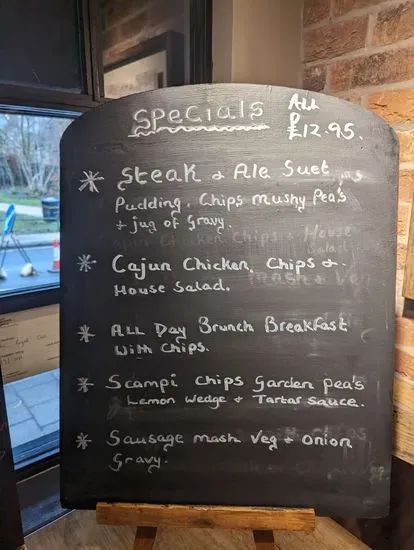 Specials
All
£12.95.
* Steak & Ale Suet
Pudding, Chips Mushy Pea's
+ jug of Gravy.
* Cajun Chicken, Chips &
House Salad.
* All Day Brunch Breakfast
With Chips.
* Scampi Chips Garden Pea's
Lemon Wedge & Tartar Sauce.
* Sausage mash Veg & onion
Gravy.